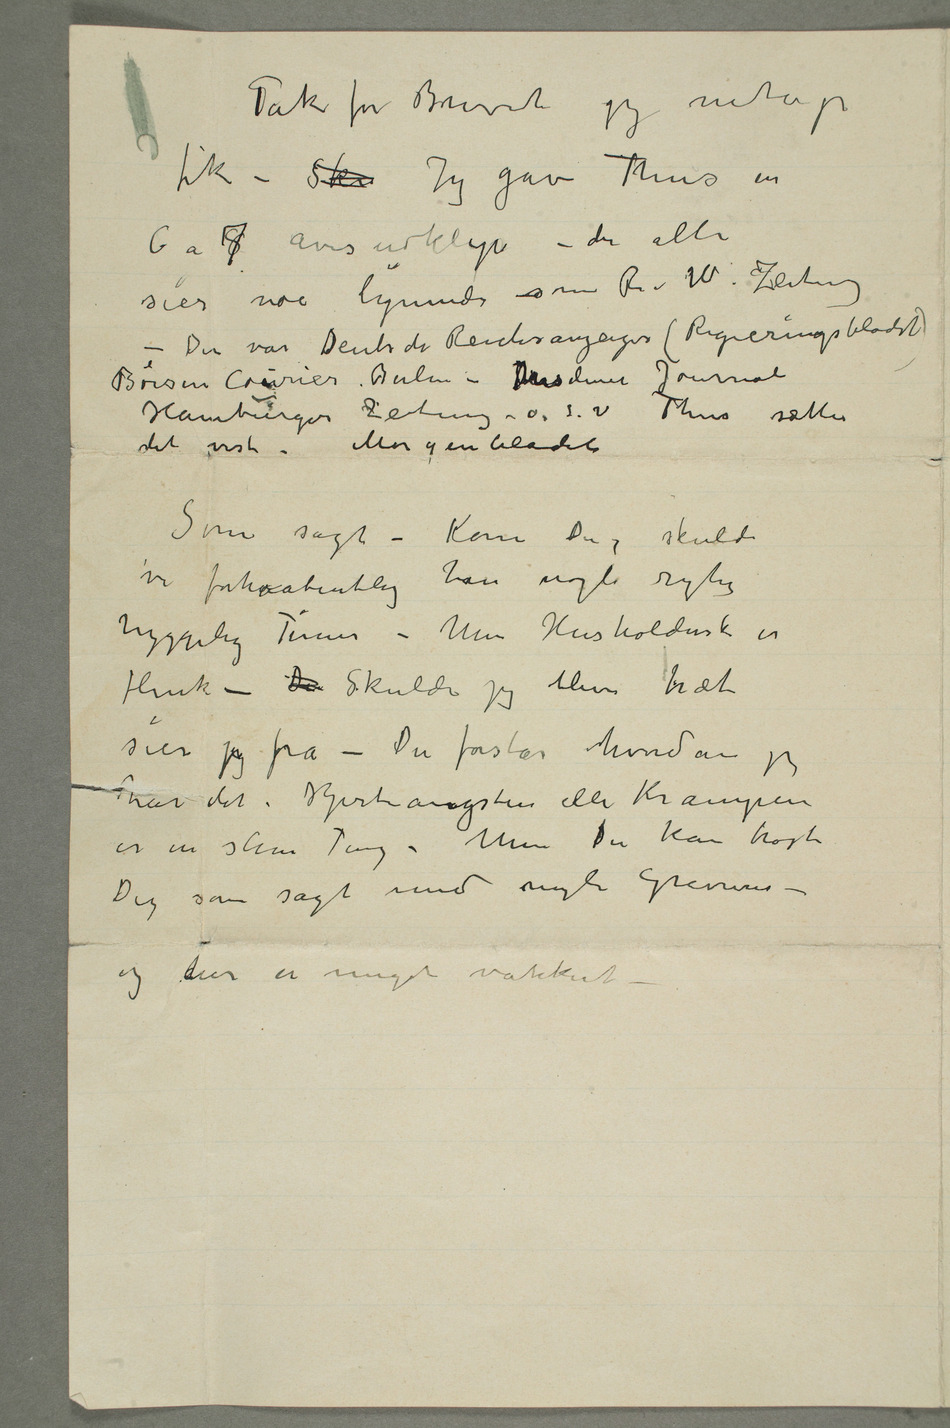 Tak for Brevet jeg netop
fik – Ske Jeg gav Thiis en
6 a 7 avisudklip – der alle
sier noe lignende som R. W. Zeitung
– Der var Deutsche Reichsanzeiger (Regieringsbladet)
Börsen Courier. Berlin – Dresdener Journal
Hamburger Zeitung – o. s. v Thiis sætter
det vist. Morgenbladet
Som sagt – Kom Du, skulde
vi forhaabentlig han nogle rigtig
hyggelig Timer – Min Husholderske er
flink – De Skulde jeg blive træt
sier jeg fra – Du forstår hvordan jeg
har det. Hjerteangsten eller Krampen
er en slem Ting. Men Du kan trøste
Dig som sagt med nogle Graveurer –
og her er meget vakkert –